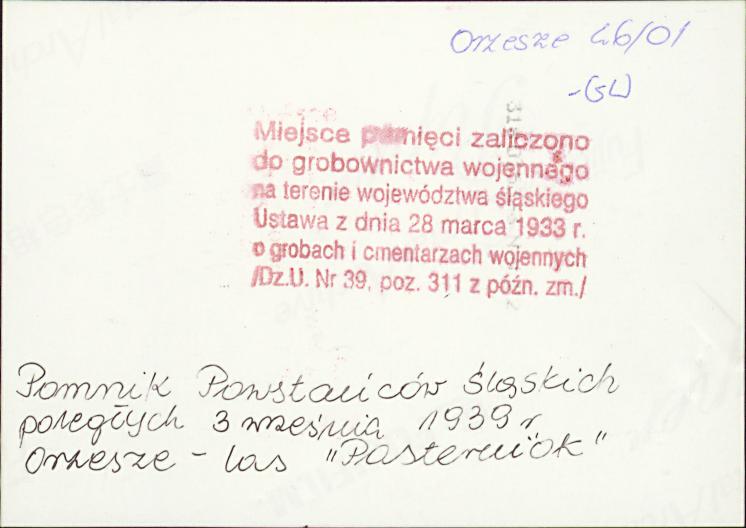 Orzesze 46/01
-(GL)
Miejsce pamięci zaliczono
do grobownictwa wojennego
na terenie województwa śląskiego
Ustawa z dnia 28 marca 1933 r.
o grobach i cmentarzach wojennych
/Dz.U. Nr 39, poz. 311 z późn. zm./
Pomnik Powstańców Śląskich
poległych 3 września 1939 r.
Orzesze - las "Pasterniok"